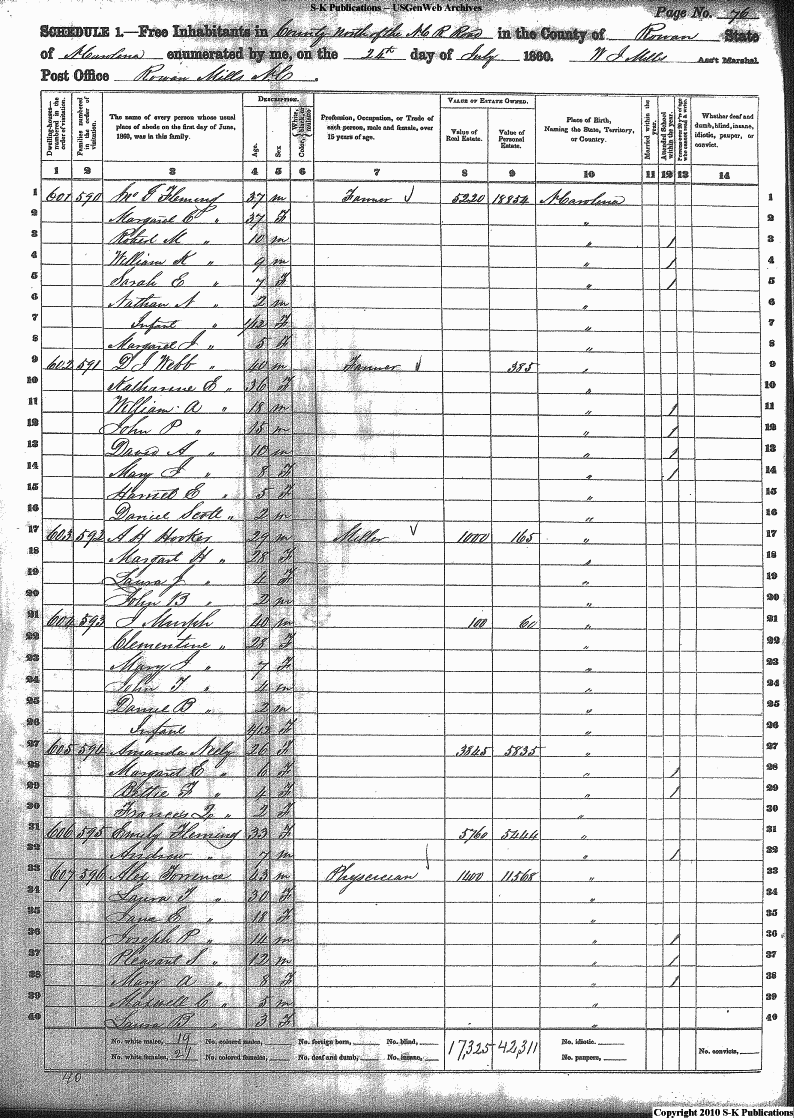 S-K Publications – USGenWeb Archives
Page No. 76
SCHEDULE 1.—Free Inhabitants in County North of the NC R Road in the County of Rowan State
of N Carolina enumerated by me, on the 24th day of July 1860. W J Mills Ass't Marshal.
Post Office Rowan Mills NC.
Dwelling-houses numbered in the order of visitation. Families numbered in the order of visitation. The name of every person whose usual place of abode on the first day of June, 1860, was in this family. DESCRIPTION. Age. Sex. Color, White, black, or mulatto. Profession, Occupation, or Trade of each person, male and female, over 15 years of age. VALUE OF ESTATE OWNED. Value of Real Estate. Value of Personal Estate. Place of Birth, Naming the State, Territory, or Country. Married within the year. Attended School within the year. Whether deaf and dumb, blind, insane, idiotic, pauper, or convict.
1 2 3 4 5 6 7 8 9 10 11 12 13 14
1 601 590 Fleming 37 m Farmer 5220 18854 N Carolina 1
2 Margaret C " 37 F " 2
3 Robert M " 10 m " / 3
4 William K " 9 m " / 4
5 Sarah E " 7 F " / 5
6 Nathan N " 2 m " 6
7 Infant " 1/12 F " 7
8 Margaret J " 5 F " 8
9 602 591 D J Webb " 40 m Farmer 385 " 9
10 Katharine E " 36 F " 10
11 William A " 18 m " / 11
12 John P " 15 m " / 12
13 David A " 10 m " / 13
14 Mary J " 8 F " / 14
15 Harriet E " 5 F " 15
16 Daniel Scott " 2 m " 16
17 603 592 A H Hooker 29 m Miller 1000 165 " 17
18 Margart H " 28 F " 18
19 Laura J " 4 F " 19
20 John B " 2 m " 20
21 604 593 J Murph 40 m 100 60 " 21
22 Clementine " 28 F " 22
23 Mary J " 7 F " 23
24 John T " 4 m " 24
25 Daniel B " 2 m " 25
26 Infant 4/12 F " 26
27 605 594 Amanda Neely 26 F 3845 5835 " 27
28 Margaret E " 6 F " / 28
29 Bettie F " 4 F " / 29
30 Frances " 2 F " 30
31 606 595 Emily Fleming 33 F 5760 5444 " 31
32 Andrew " 7 m " / 32
33 607 596 Alex Torrence 43 m Physcician 1400 11568 " 33
34 Laura T " 30 F " 34
35 Jane E " 18 F " 35
36 Joseph P " 14 m " / 36
37 Pleasant S " 12 m " / 37
38 Mary A " 8 F " / 38
39 Maxwell C " 5 m " 39
40 Laura B " 3 F " 40
No. white males, 19 No. colored males, No. foreign born, No. blind, 17,325 42,311 No. idiotic. No. convicts,
No. white females, 21 No. colored females, No. deaf and dumb, No. insane, No. paupers,
40
Copyright 2010 S-K Publications